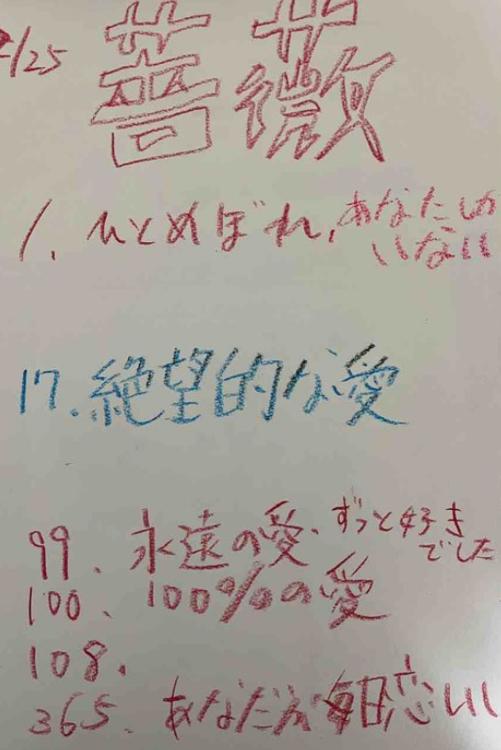 /25
薔薇
1. ひとめぼれ,あなたしか
いない
17.絶望的な愛
99. 永遠の愛、ずっと好き
でした
100. 100%の愛
108.
365. あなたが毎日恋しい